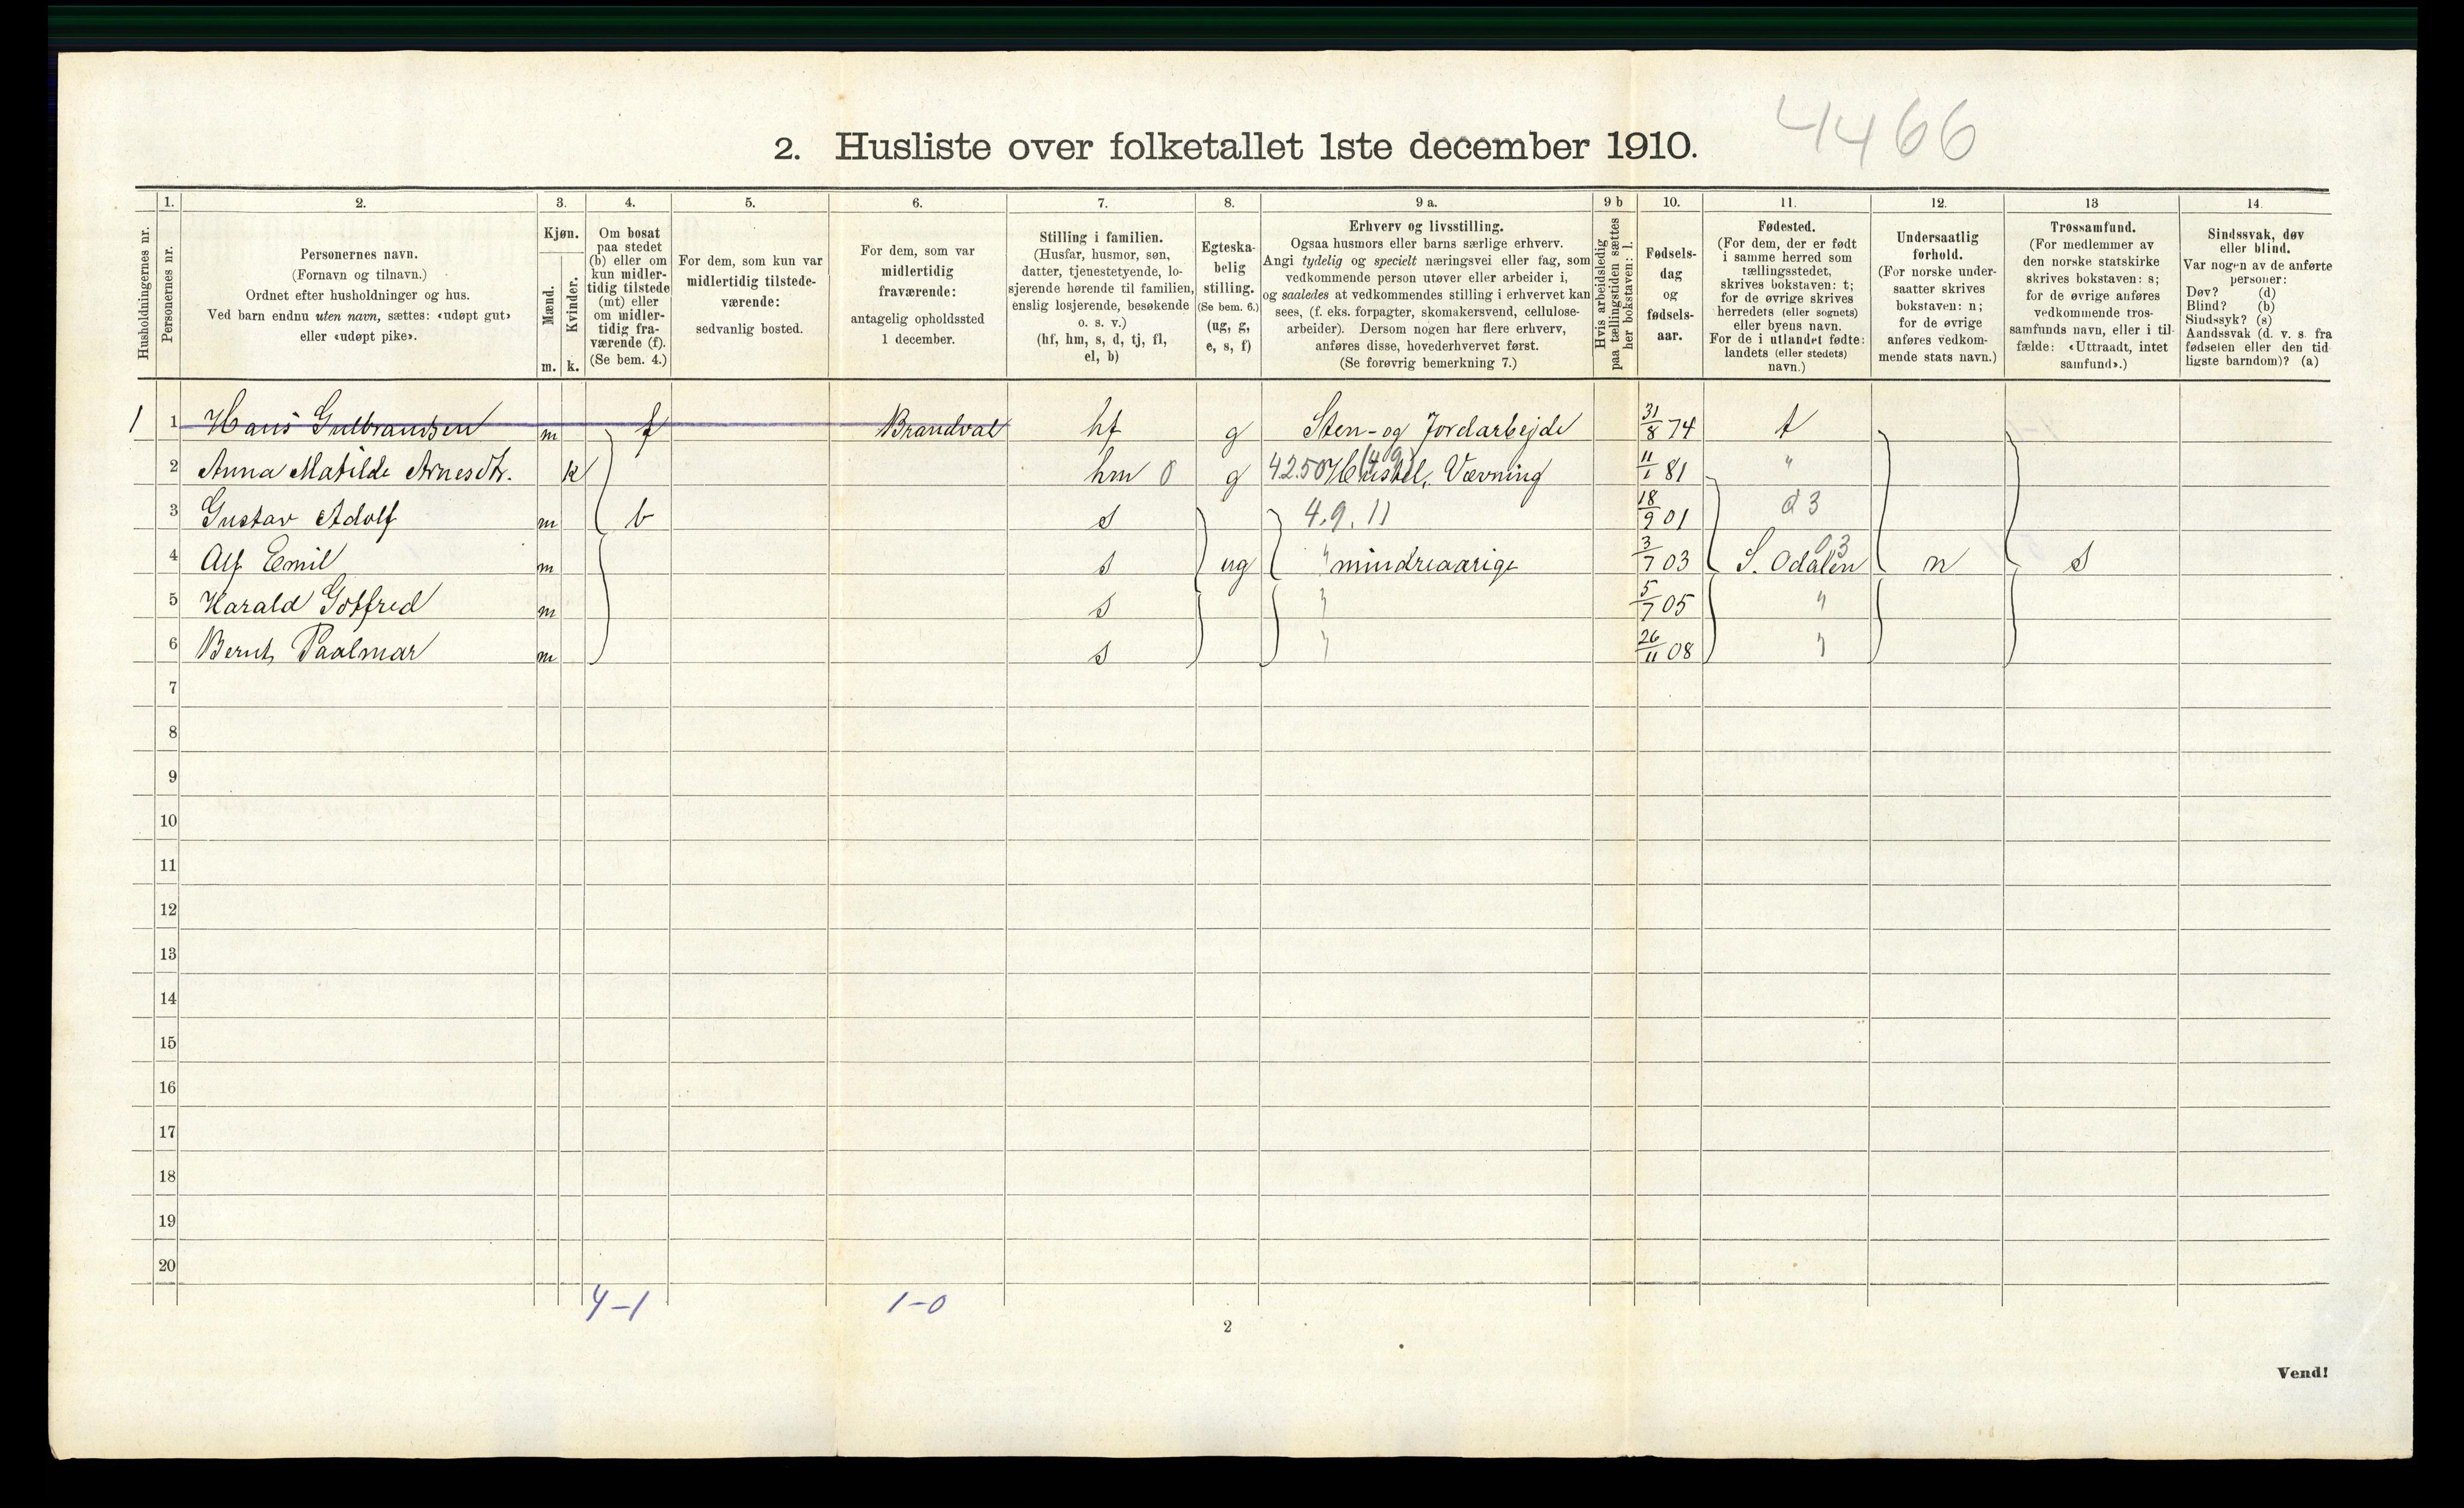 4466
2. Husliste over folketallet 1ste december 1910.
Husholdningernes nr.
1.
Personernes nr.
2.
Personernes navn.
(Fornavn og tilnavn.)
Ordnet efter husholdninger og hus.
Ved barn endnu uten navn, sættes: «udøpt gut»
eller «udøpt pike».
3.
Kjøn.
Mænd.
Kvinder.
m.
k.
4.
Om bosat
paa stedet
(b) eller om
kun midler-
tidig tilstede
(mt) eller
om midler-
tidig fra-
værende (f).
(Se bem. 4.)
5.
For dem, som kun var
midlertidig tilstede-
værende:
sedvanlig bosted.
6.
For dem, som var
midlertidig
fraværende:
antagelig opholdssted
1 december.
7.
Stilling i familien.
(Husfar, husmor, søn,
datter, tjenestetyende, lo-
sjerende hørende til familien,
enslig losjerende, besøkende
o. s. v.)
(hf, hm, s, d, tj, fl,
el, b)
8.
Egteska-
belig
stilling.
(Se bem. 6.)
(ug, g,
e, s, f)
9 a.
Erhverv og livsstilling.
Ogsaa husmors eller barns særlige erhverv.
Angi tydelig og specielt næringsvei eller fag, som
vedkommende person utøver eller arbeider i,
og saaledes at vedkommendes stilling i erhvervet kan
sees, (f. eks. forpagter, skomakersvend, cellulose-
arbeider). Dersom nogen har flere erhverv,
anføres disse, hovederhvervet først.
(Se forøvrig bemerkning 7.)
9 b
Hvis arbeidsledig
paa tællingstiden sættes
her bokstaven: l.
10.
Fødsels-
dag
og
fødsels-
aar.
11.
Fødested.
(For dem, der er født
i samme herred som
tællingsstedet,
skrives bokstaven: t;
for de øvrige skrives
herredets (eller sognets)
eller byens navn.
For de i utlandet fødte:
landets (eller stedets)
navn.)
12.
Undersaatlig
forhold.
(For norske under-
saatter skrives
bokstaven: n;
for de øvrige
anføres vedkom-
mende stats navn.)
13
Trossamfund.
(For medlemmer av
den norske statskirke
skrives bokstaven: s;
for de øvrige anføres
vedkommende tros-
samfunds navn, eller i til-
fælde: «Uttraadt, intet
samfund».)
14.
Sindssvak, døv
eller blind.
Var nogen av de anførte
personer:
Døv? (d)
Blind? (b)
Sindssyk? (s)
Aandssvak (d. v. s. fra
fødselen eller den tid-
ligste barndom)? (a)
1 1 Hans Gulbrandsen m f Brandval hf g Sten- og Jordarbejde 31/8 74 t
2 Anna Matilde Arnesdtr. k hm 0 g Vævning 11/1 81 "
3 Gustav Adolf m b s 4.9.11 18/9 01 d 3
4 Alf Emil m s ug " mindreaarige 3/7 03 S. Odalen 03 n s
5 Harald Gotfred m s " 5/7 05 "
6 Bernt Paalmar m s " 26/11 08 "
7
8
9
10
11
12
13
14
15
16
17
18
19
20
4-1 1-0
2
Vend!